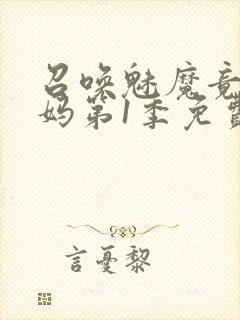 召唤魅魔竟
妈第1季免费
言憂黎